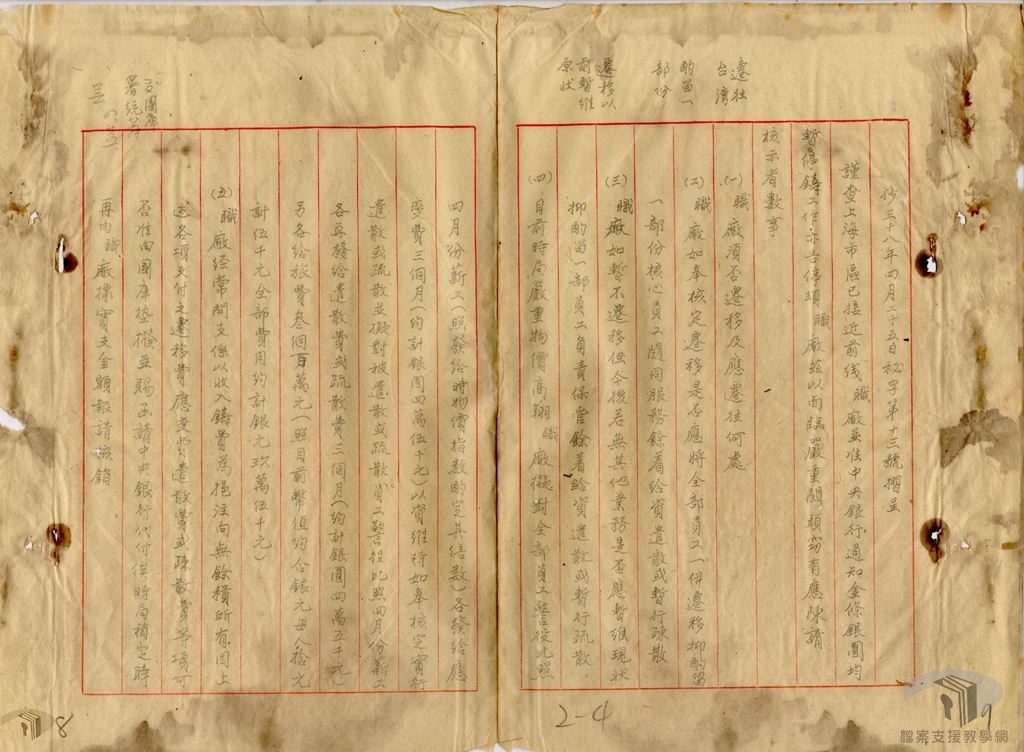 遷往
台灣
酌留一
部份
遷移以
前暫維
原狀
抄三十八年四月二十五日秘字第十三號摺呈
謹查上海市區已接近前线職廠並准中央銀行通知金條銀圓均
暫停鑄工作亦告停頓職廠茲以面臨嚴重關頭竊有應陳請
核示者數事
(一)職廠須否遷移及應遷往何處
(二)職廠如奉核定遷移是否應將全部員工一併遷移抑酌留
一部份核心員工隨同服務餘着給資遣散或暫行疎散
(三)職廠如暫不遷移但今後若無其他業務是否應暫維現狀
抑酌留一部員工負責保管餘着給資遣散或暫行疏散
(四)目前時局嚴重物價高翔職廠擬對全部員工警役比照
四月份薪工(照發給時物價指數酌定其倍數)各發給應
變費三個月(約計銀圓四萬伍仟元)以資維持如奉核定實行
遣散或疏散並擬對被遣散或疏散之員工警役比照四月份薪工
各再發給遣散費或疏散費三個月(約計銀圓四萬五千元)
另各給旅費叁佰百萬元(照目前幣值約合銀元每人拾元
計伍千元全部費用約計銀元玖萬伍千元)
(五)職廠經常開支係以收入鑄費為挹注向無餘積所有因上
述各項支付之遷移費應變費遣散費或疎散費等項可
否准由國庫墊撥並賜函請中央銀行代付俟時局稍定時
再由職廠據實支金額報請核銷
國庫
署統籌
8
2-4
9
檔案支援教學網